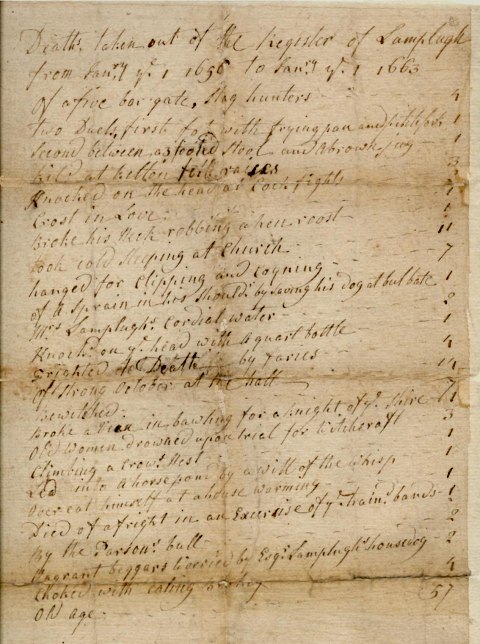 Deaths taken out of the Register of Lamplugh
from Janry ye. 1 1656 to Janry ye. 1 1663
Of a five bar gate, Stag hunters 4
two Duels, first fot with frying pan and pitchforks 1
Second between a 3 footed Stool and a brown jug 1
Kild at Kelton fell races 3
Knocked on the head at Cock fight
Crost in Love 1
Broke his Neck robbing a hen roost 1
Took cold sleeping at Church 11
hanged for Clipping and coyning 7
of a Sprain in his Shouldr by saving his dog at bul bate 1
Mrs Lamplugh's Cordial water 2
Knockd on ye head with a quart bottle 1
frighted to Death by faries 4
Of Strong October at the hall 14
bewitched 7
Broke a Vein in bawling for a Knight of ye. Shire 1
Old Women drowned upon trial for Witchcraft 3
Climbing a Crows Nest 1
Led into a horsepond by a will of the whisp 1
Over eat himself at a house warming 1
Died of a fright in an Exercise of ye train bands 1
By the Parsons bull 2
Vagrant beggars worried by Esqr. Lamplugh's housedog 2
Choked with eating barley 4
Old age 57